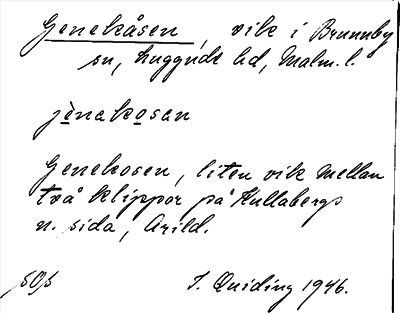 Genekåsen, vik i Brunnby
sn, Luggude hd, Malm. l.
jènekosan
Genekosen, liten vik mellan
två klippor på Kullabergs
n. sida, Arild.
S. Quiding 1946.